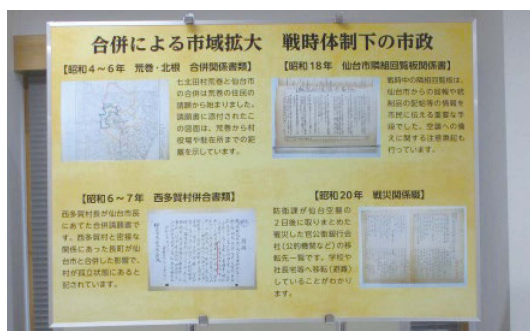 合併による市域拡大 戦時体制下の市政
【昭和4～6年 荒巻・北根 合併関係書類】
七北田村荒巻と仙台市
の合併は荒巻の住民の
請願から始まりました。
請願書に添付されたこ
の図面は、荒巻から村
役場や駐在所までの距
離を示しています。
【昭和18年 仙台市隣組回覧板関係書】
戦時中の隣組回覧板は、
仙台市からの回報や統
制品の配給等の情報を
市民に伝える重要な手
段でした。空襲への備
えに関する注意喚起も
行っています。
【昭和6～7年 西多賀村併合書類】
西多賀村長が仙台市長
にあてた合併請願書で
す。西多賀村と密接な
関係にあった長町が仙
台市と合併した影響で、
村が孤立状態にあると
記されています。
【昭和20年 戦災関係綴】
防衛課が仙台空襲の
2日後に取りまとめた
戦災した官公衙銀行会
社(公的機関など)の移
転先一覧です。学校や
社長宅等へ移転(避難)
していることがわかり
ます。